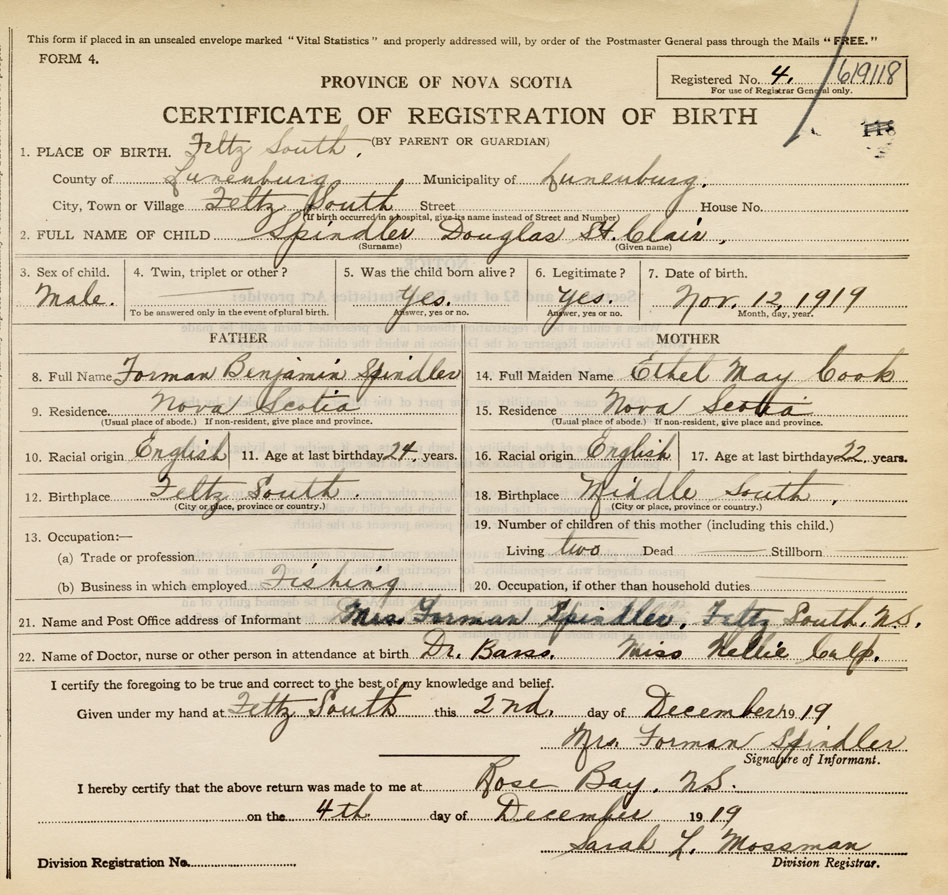 This form if placed in an unsealed envelope marked "Vital Statistics" and properly addressed will, by order of the Postmaster General pass through the Mails "FREE."
FORM 4.
Registered No. 4. 619118
For use of Registrar General only.
PROVINCE OF NOVA SCOTIA
CERTIFICATE OF REGISTRATION OF BIRTH
118
(BY PARENT OR GUARDIAN)
1. PLACE OF BIRTH. Feltz South.
County of Lunenburg, Municipality of Lunenburg.
City, Town or Village Feltz South Street House No.
(If birth occurred in a hospital, give its name instead of Street and Number)
2. FULL NAME OF CHILD Spindler Douglas St. Clair,
(Surname) (Given name)
3. Sex of child. 4. Twin, triplet or other? 5. Was the child born alive? 6. Legitimate? 7. Date of birth.
Male. Yes. Yes. Nov. 12, 1919
To be answered only in the event of plural birth. Answer, yes or no. Answer, yes or no. Month, day, year.
FATHER MOTHER
8. Full Name Forman Benjamin Spindler 14. Full Maiden Name Ethel May Cook
9. Residence. Nova Scotia 15. Residence Nova Scotia
(Usual place of abode.) If non-resident, give place and province. (Usual place of abode.) If non-resident, give place and province.
10. Racial origin English 11. Age at last birthday 24. years. 16. Racial origin English 17. Age at last birthday 22 years.
12. Birthplace Feltz South. 18. Birthplace Middle South,
(City or place, province or country.) (City or place, province or country.)
13. Occupation:— 19. Number of children of this mother (including this child.)
(a) Trade or profession Living two Dead Stillborn
(b) Business in which employed Fishing 20. Occupation, if other than household duties
21. Name and Post Office address of Informant Mrs. Forman Spindler, Feltz South. N.S.
22. Name of Doctor, nurse or other person in attendance at birth Dr. Barss. Miss Nellie Culp.
I certify the foregoing to be true and correct to the best of my knowledge and belief.
Given under my hand at Feltz South this 2nd. day of December 1919
Mrs Forman Spindler
Signature of Informant.
I hereby certify that the above return was made to me at Rose Bay, N.S.
on the 4th day of December 1919
Sarah L. Mossman
Division Registrar.
Division Registration No.